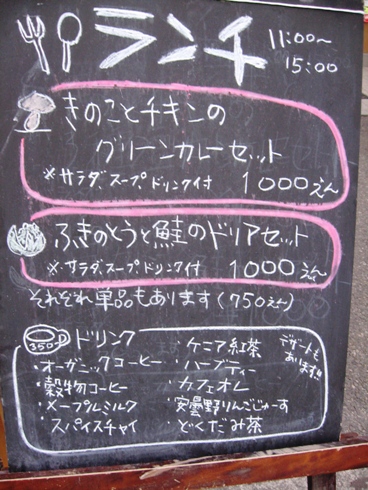 ランチ 11:00〜
15:00
きのことチキンの
グリーンカレーセット
※サラダ、スープ、ドリンク付 1000えん
ふきのとうと鮭のドリアセット
※サラダ、スープ、ドリンク付 1000えん
それぞれ単品もあります(750えん)
350 ドリンク
・オーガニックコーヒー
・穀物コーヒー
・メープルミルク
・スパイスチャイ
・ケニア紅茶
・ハーブティー
・カフェオレ
・安曇野りんごじゅーす
・どくだみ茶
デザートも
あります!!